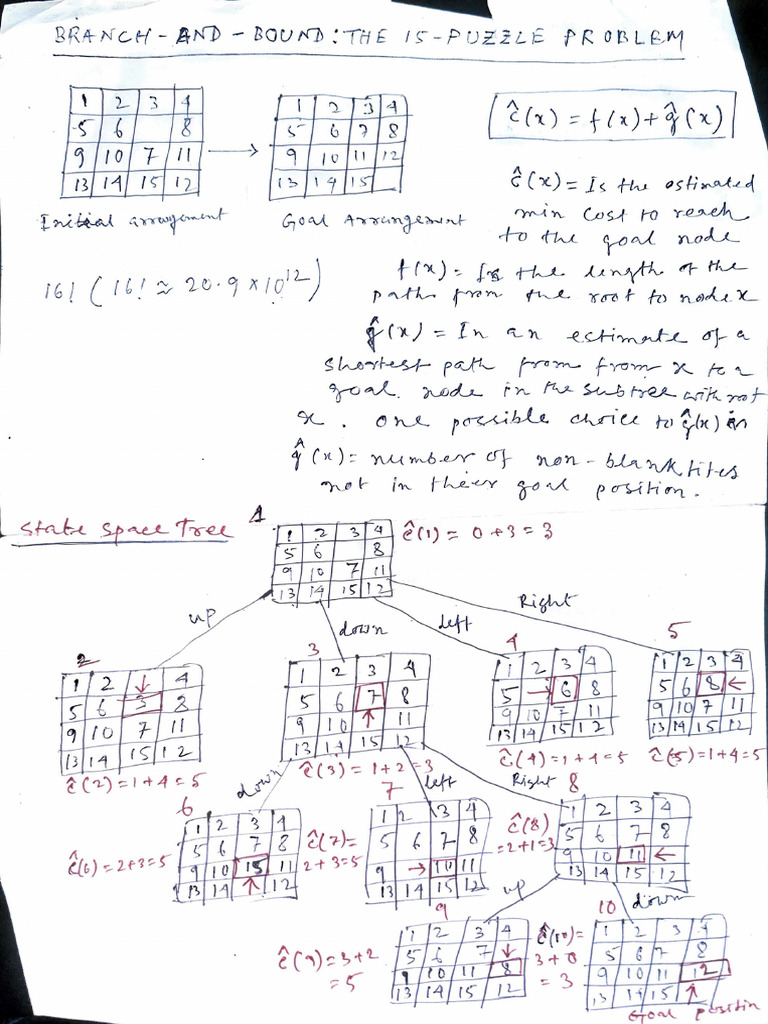 BRANCH-AND-BOUND: THE 15-PUZZLE PROBLEM
1 2 3 4
5 6 8
9 10 7 11
13 14 15 12
Initial arrangement
1 2 3 4
5 6 7 8
9 10 11 12
13 14 15
Goal Arrangement
16! (16! ≈ 20.9 × 10^12)
ĉ(x) = f(x) + ĝ(x)
ĉ(x) = Is the estimated
min cost to reach
to the goal node
f(x) = Is the length of the
path from the root to node x
ĝ(x) = In an estimate of a
shortest path from from x to a
goal node in the subtree with root
x. One possible choice to ĝ(x) is
ĝ(x) = number of non-blank tites
not in their goal position.
State Space Tree
1
1 2 3 4
5 6 8
9 10 7 11
13 14 15 12
ĉ(1) = 0+3 = 3
up
down
left
Right
2
1 2 ↓ 4
5 6 3 8
9 10 7 11
13 14 15 12
ĉ(2) = 1+4 = 5
3
1 2 3 4
5 6 7 8
9 10 ↑ 11
13 14 15 12
ĉ(3) = 1+2 = 3
4
1 2 3 4
5 → 6 8
9 10 7 11
13 14 15 12
ĉ(4) = 1+4 = 5
5
1 2 3 4
5 6 8 ←
9 10 7 11
13 14 15 12
ĉ(5) = 1+4 = 5
down
left
Right
6
1 2 3 4
5 6 7 8
9 10 15 11
13 14 ↑ 12
ĉ(6) = 2+3 = 5
7
1 2 3 4
5 6 7 8
9 → 10 11
13 14 15 12
ĉ(7) =
2+3 = 5
8
1 2 3 4
5 6 7 8
9 10 11 ←
13 14 15 12
ĉ(8)
= 2+1 = 3
up
down
9
1 2 3 4
5 6 7 ↓
9 10 11 8
13 14 15 12
ĉ(9) = 3+2
= 5
10
1 2 3 4
5 6 7 8
9 10 11 12
13 14 15 ↑
ĉ(10) =
3+0
= 3
Goal positin